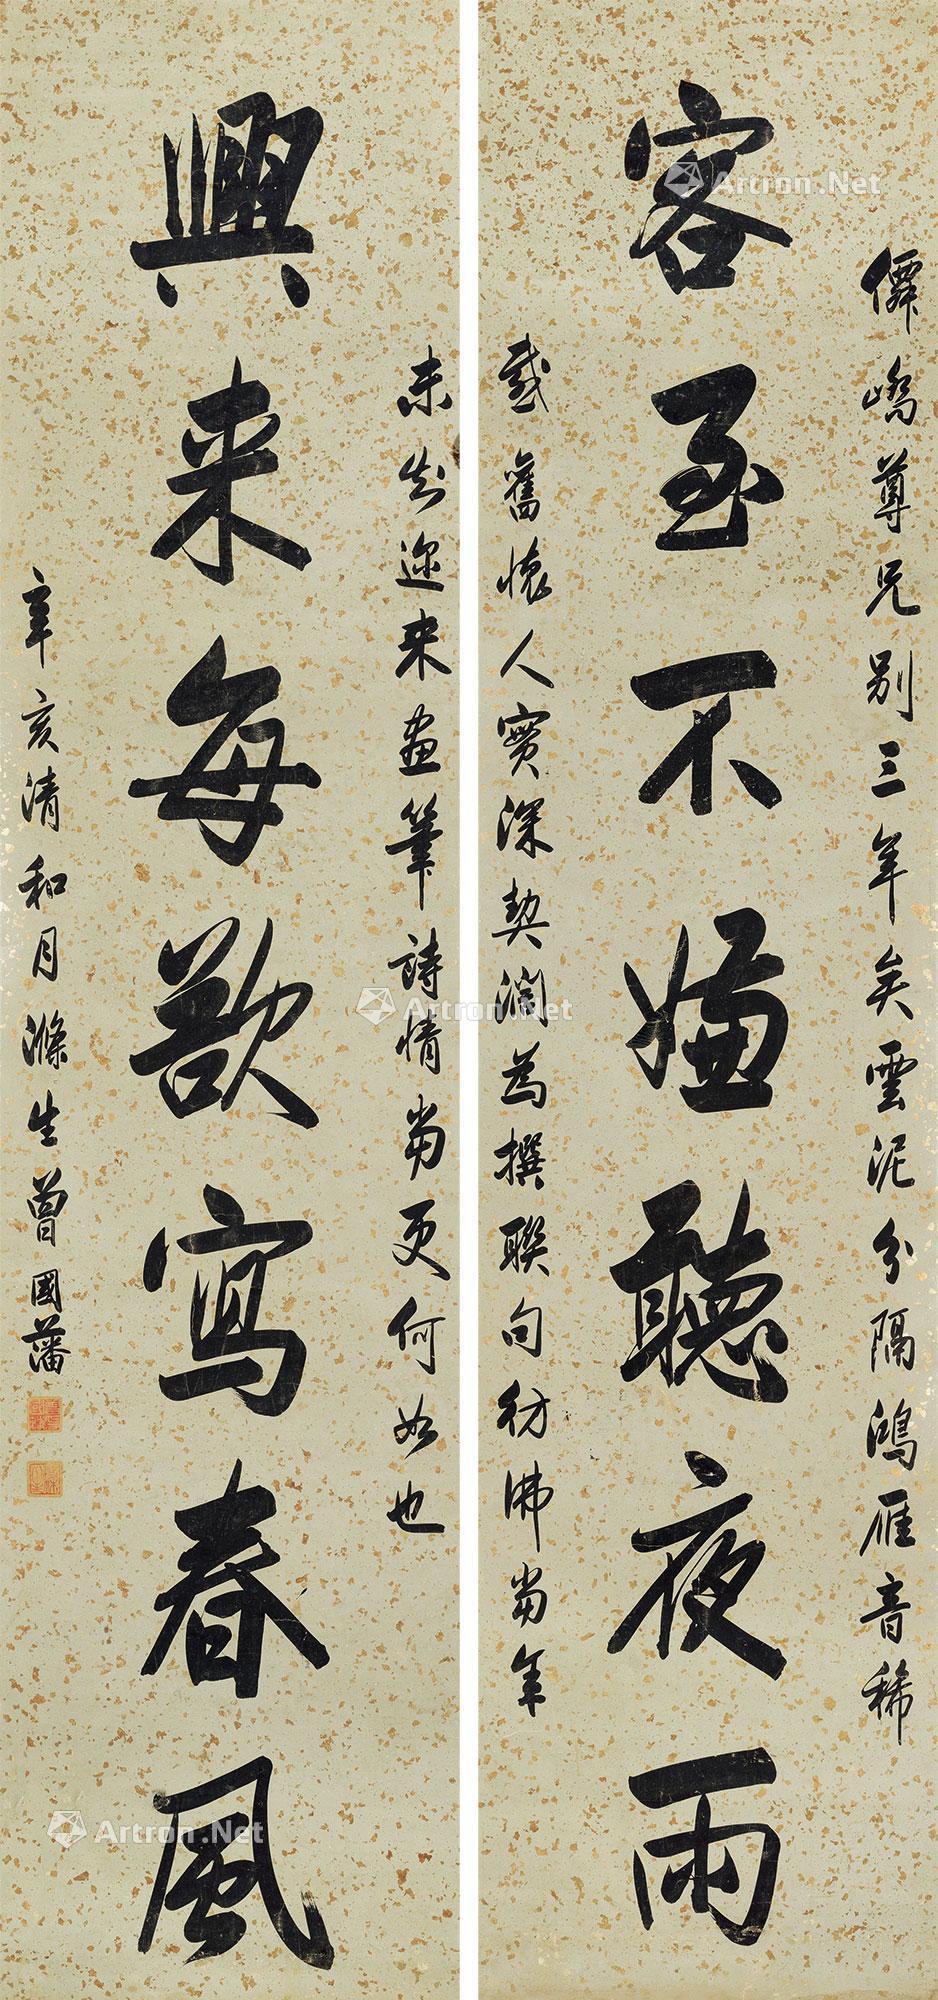 僊嶠尊兄別三年矣雲泥分隔鴻雁音稀
客至不嫌聽夜雨
感舊懷人實深契闊為撰聯句彷彿當年
未知邇來畫筆詩情當更何如也
興來每欲寫春風
辛亥清和月滌生曾國藩
Artron.Net
Artron.Net
Artron.Net